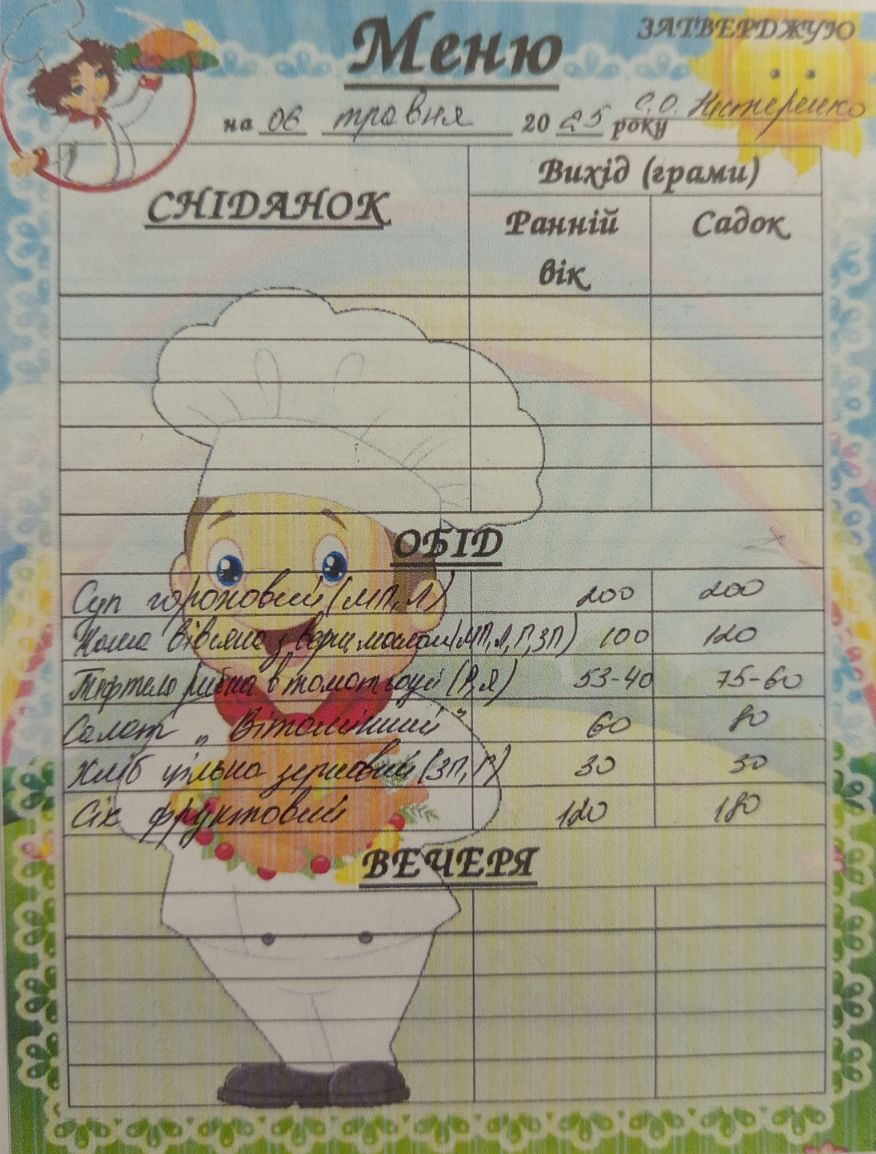 ЗАТВЕРДЖУЮ
Меню
С.О. Нестеренко
на 06 травня 2025 року
СНІДАНОК
Вихід (грами)
Ранній вік
Садок
ОБІД
Суп гороховий (МП, Л) 200 200
Каша вівсяна з верш маслом (МП, Л, Г, ЗП) 100 120
Тефтелі рибна в томат соусі (Р, Я) 53-40 75-60
Салат „Вітамінний" 60 80
Хліб цільно зерновий (ЗП, Г) 30 50
Сік фруктовий 120 180
ВЕЧЕРЯ